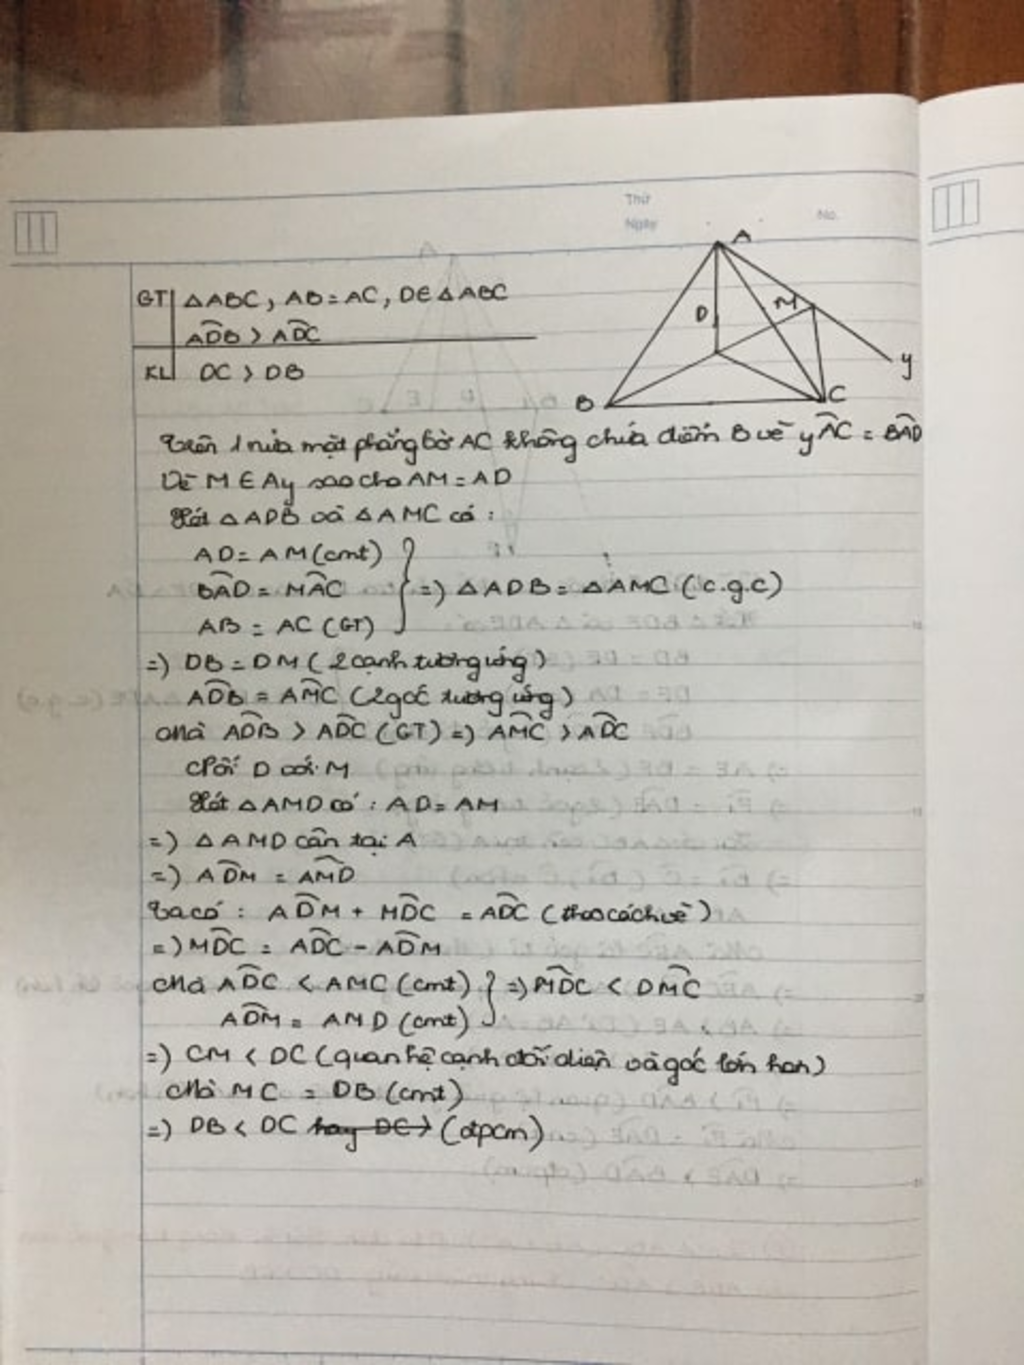 Thứ
Ngày
No.
GT ΔABC, AB = AC, D∈ΔABC
ADB̂ > ADĈ
KL DC > DB
A
D
M
y
B
C
Trên 1 nửa mặt phẳng bờ AC không chứa điểm B vẽ yÂC = BÂD
Vẽ M ∈ Ay sao cho AM = AD
Xét ΔADB và ΔAMC có :
AD = AM (cmt)
BÂD = MÂC } => ΔADB = ΔAMC (c.g.c)
AB = AC (GT)
=> DB = DM (2 cạnh tương ứng)
AD̂B = AM̂C (2 góc tương ứng)
Mà AD̂B > AD̂C (GT) => AM̂C > AD̂C
Nối D với M
Xét ΔAMD có : AD = AM
=> ΔAMD cân tại A
=> AD̂M = AM̂D
Ta có : AD̂M + MD̂C = AD̂C (theo cách vẽ)
=> MD̂C = AD̂C - AD̂M
Mà AD̂C < AMC (cmt) } => MD̂C < DM̂C
AD̂M = AMD (cmt)
=> CM < DC (quan hệ cạnh đối diện và góc lớn hơn)
Mà MC = DB (cmt)
=> DB < DC hay DC > (đpcm)